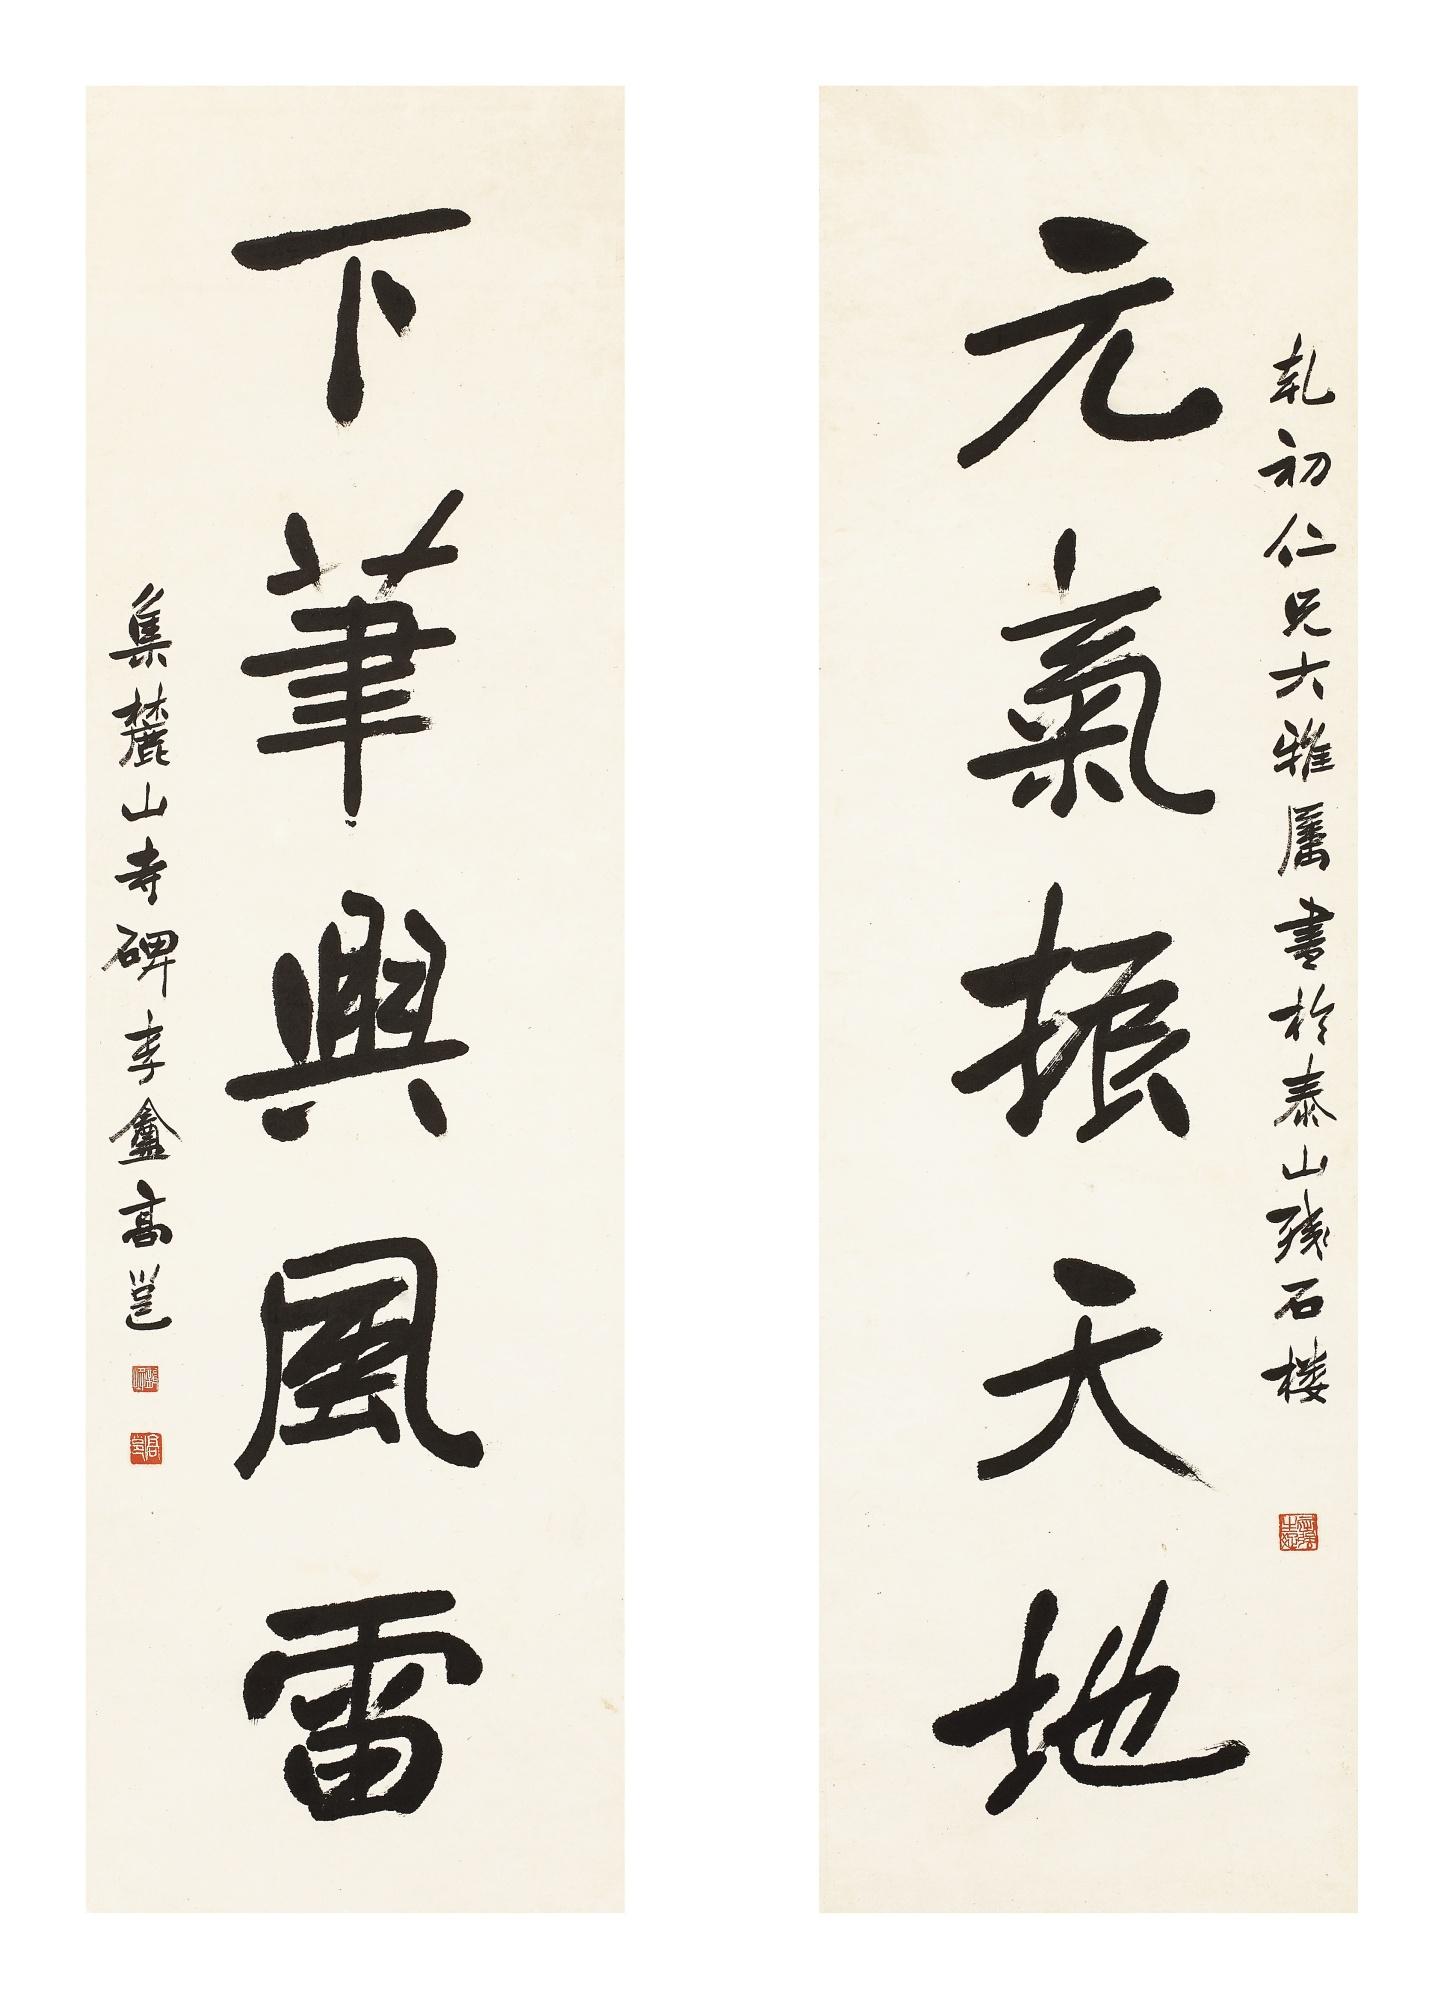 乹初仁兄大雅屬書於泰山殘石樓
元氣振天地
下筆興風雷
集麓山寺碑李盦高邕